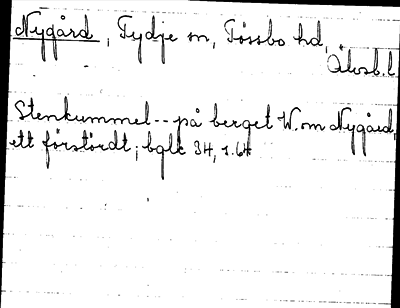 Nygård, Tydje sn, Tössbo hd,
Älvsb. l
Stenkummel -- på berget W. om Nygård,
ett förstördt; bglk 34, s. 64